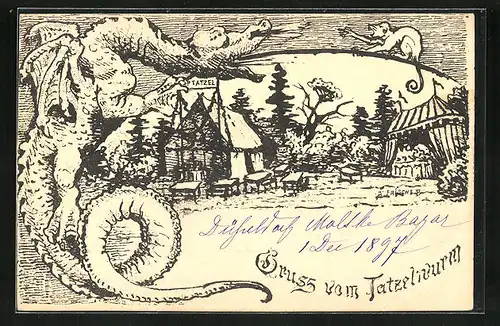 TATZEL
Düsseldorf Moltke Bazar
1 Dec 1897
Gruss vom Tatzelwurm